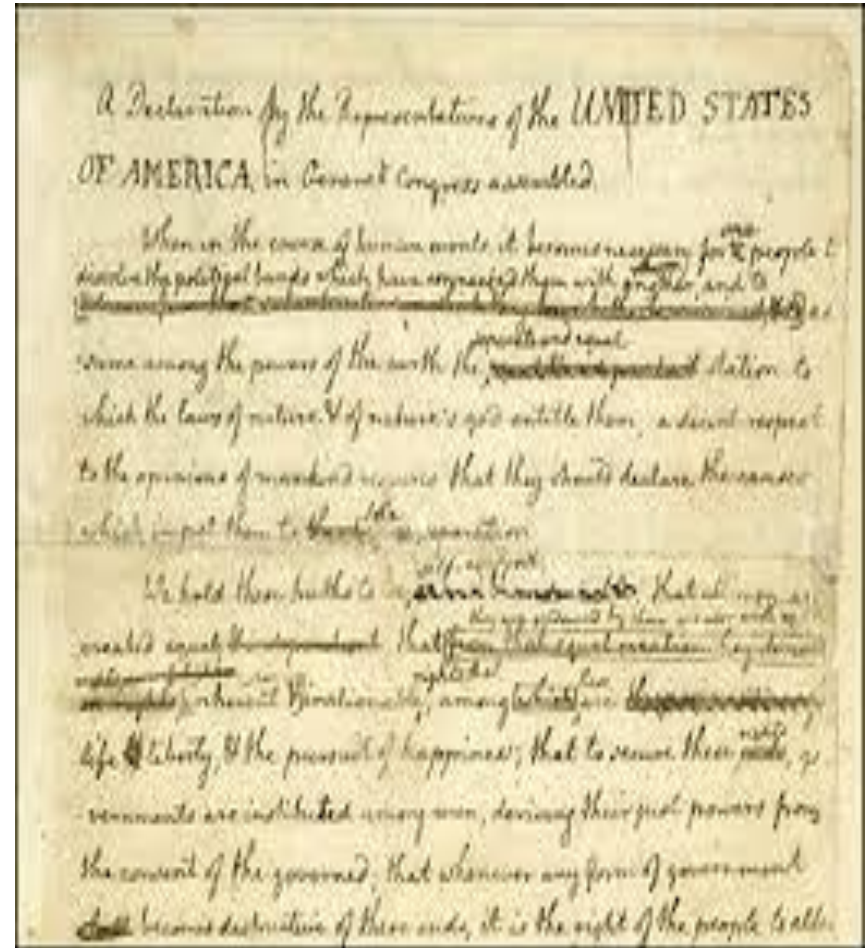 A Declaration by the Representatives of the UNITED STATES
OF AMERICA, in General Congress assembled.
When in the course of human events it becomes necessary for one people to
dissolve the political bands which have connected them with another, and to
as
sume among the powers of the earth the
separate and equal
station to
which the laws of nature & of nature's god entitle them, a decent respect
to the opinions of mankind requires that they should declare the causes
which impel them to the separation.
self-evident,
We hold these truths to be that all men are
they are endowed by their creator with
created equal that from that equal creation they derive
rights; that
inherent & inalienable, among which are
life & liberty, & the pursuit of happiness; that to secure these ends, go
rights
vernments are instituted among men, deriving their just powers from
the consent of the governed; that whenever any form of government
shall becomes destructive of these ends, it is the right of the people to alter